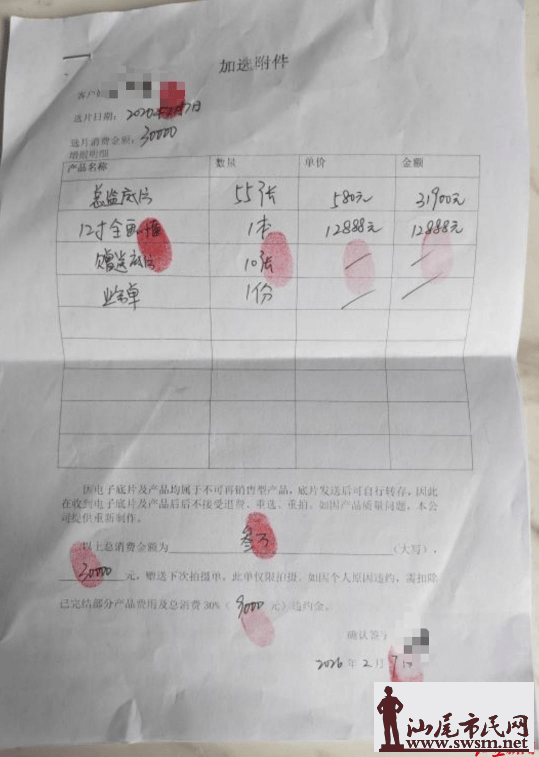 加选附件
客户
选片日期：2026年2月7日
选片消费金额：30000
增报明细
产品名称 数量 单价 金额
总监底片 55张 580元 31900元
12寸全画册 1本 12888元 12888元
赠送底片 10张 / /
1份 / /
因电子底片及产品均属于不可再销售型产品，底片发送后可自行转存，因此
在收到电子底片及产品后后不接受退费、重选、重拍。如因产品质量问题，本公
司提供重新制作。
以上总消费金额为 叁万 （大写），
30000 元，赠送下次拍摄单，此单仅限拍摄。如因个人原因违约，需扣除
已完结部分产品费用及总消费30%（9000元）违约金。
确认签字
2026年2月7日
汕尾市民网
www.swsm.net